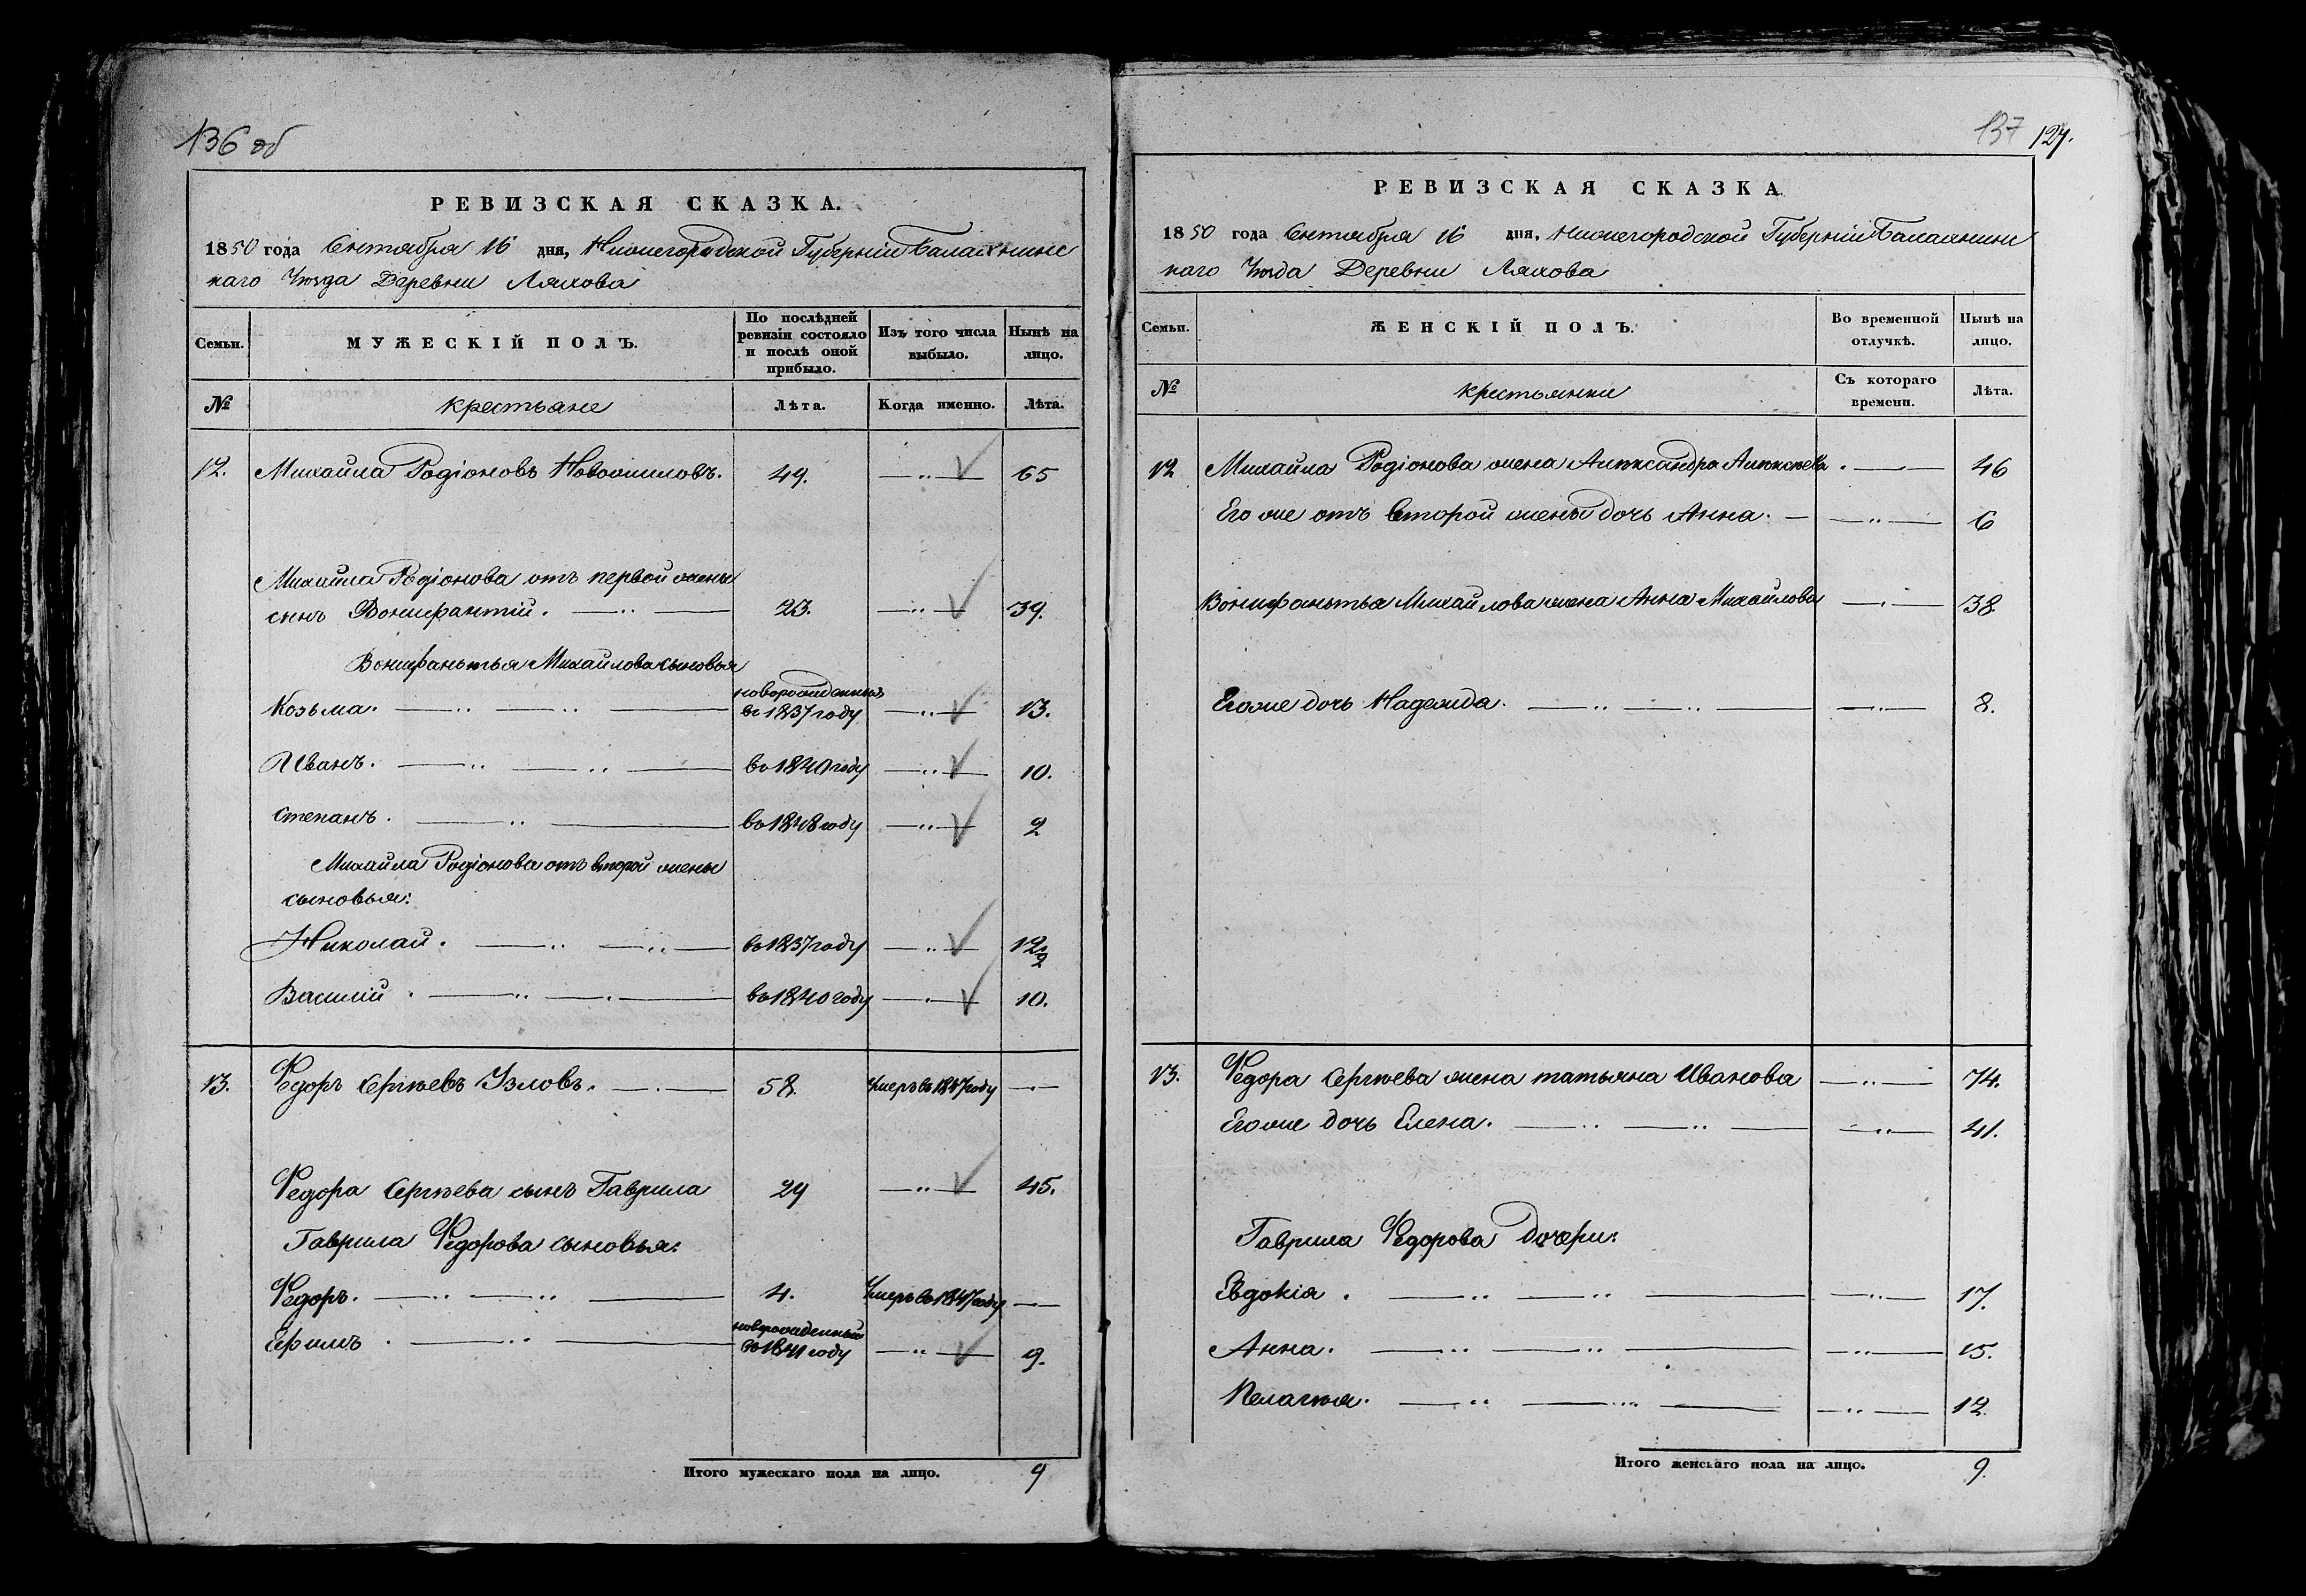 136 об
РЕВИЗСКАЯ СКАЗКА.
1850 года Сентября 16 дня, Нижегородской Губерніи Балахнинс
каго Уѣзда Деревни Ляхова
Семьи.
МУЖЕСКІЙ ПОЛЪ.
По послѣдней ревизіи состояло и послѣ оной прибыло.
Изъ того числа выбыло.
Нынѣ на лицо.
№ крестьяне Лѣта. Когда именно. Лѣта.
12. Михайла Родіоновъ 49. —„— 65
Михайла Родіонова отъ первой жены
сынъ Вонифантій. 23. —„— 39.
Вонифантья Михайлова сыновья
Козьма. новорожденный въ 1837 году —„— 13.
Иванъ. во 1840 году —„— 10.
Степанъ. во 1848 году —„— 2
Михайла Родіонова отъ второй жены
сыновья:
Николай. во 1837 году —„— 12 1/2
Василій. во 1840 году —„— 10.
13. Ѳедоръ Сергѣевъ Узловъ. 58. Умеръ въ 1847 году —
Ѳедора Сергѣева сынъ Гаврила 29 —„— 45.
Гаврила Ѳедорова сыновья:
Ѳедоръ. 4. Умеръ въ 1847 году —
Ефимъ новорожденный во 1841 году —„— 9.
Итого мужескаго пола на лицо. 9
137 127.
РЕВИЗСКАЯ СКАЗКА
1850 года Сентября 16 дня, Нижегородской Губерніи Балахнинс
каго Уѣзда Деревни Ляхова
Семьи.
ЖЕНСКІЙ ПОЛЪ.
Во временной отлучкѣ.
Нынѣ на лицо.
№ крестьянки Съ котораго времени. Лѣта.
12 Михайла Родіонова жена Александра Алексѣева — 46
Его же отъ второй жены дочь Анна. —„— 6
Вонифантья Михайлова жена Анна Михайлова — 38.
Его же дочь Надежда. —„— 8.
13. Ѳедора Сергѣева жена татьяна Иванова —„— 74.
Его же дочь Елена. —„— 41.
Гаврила Ѳедорова дочери:
Евдокія. —„— 17.
Анна. —„— 15.
Пелагѣя. —„— 12.
Итого женскаго пола на лицо. 9.